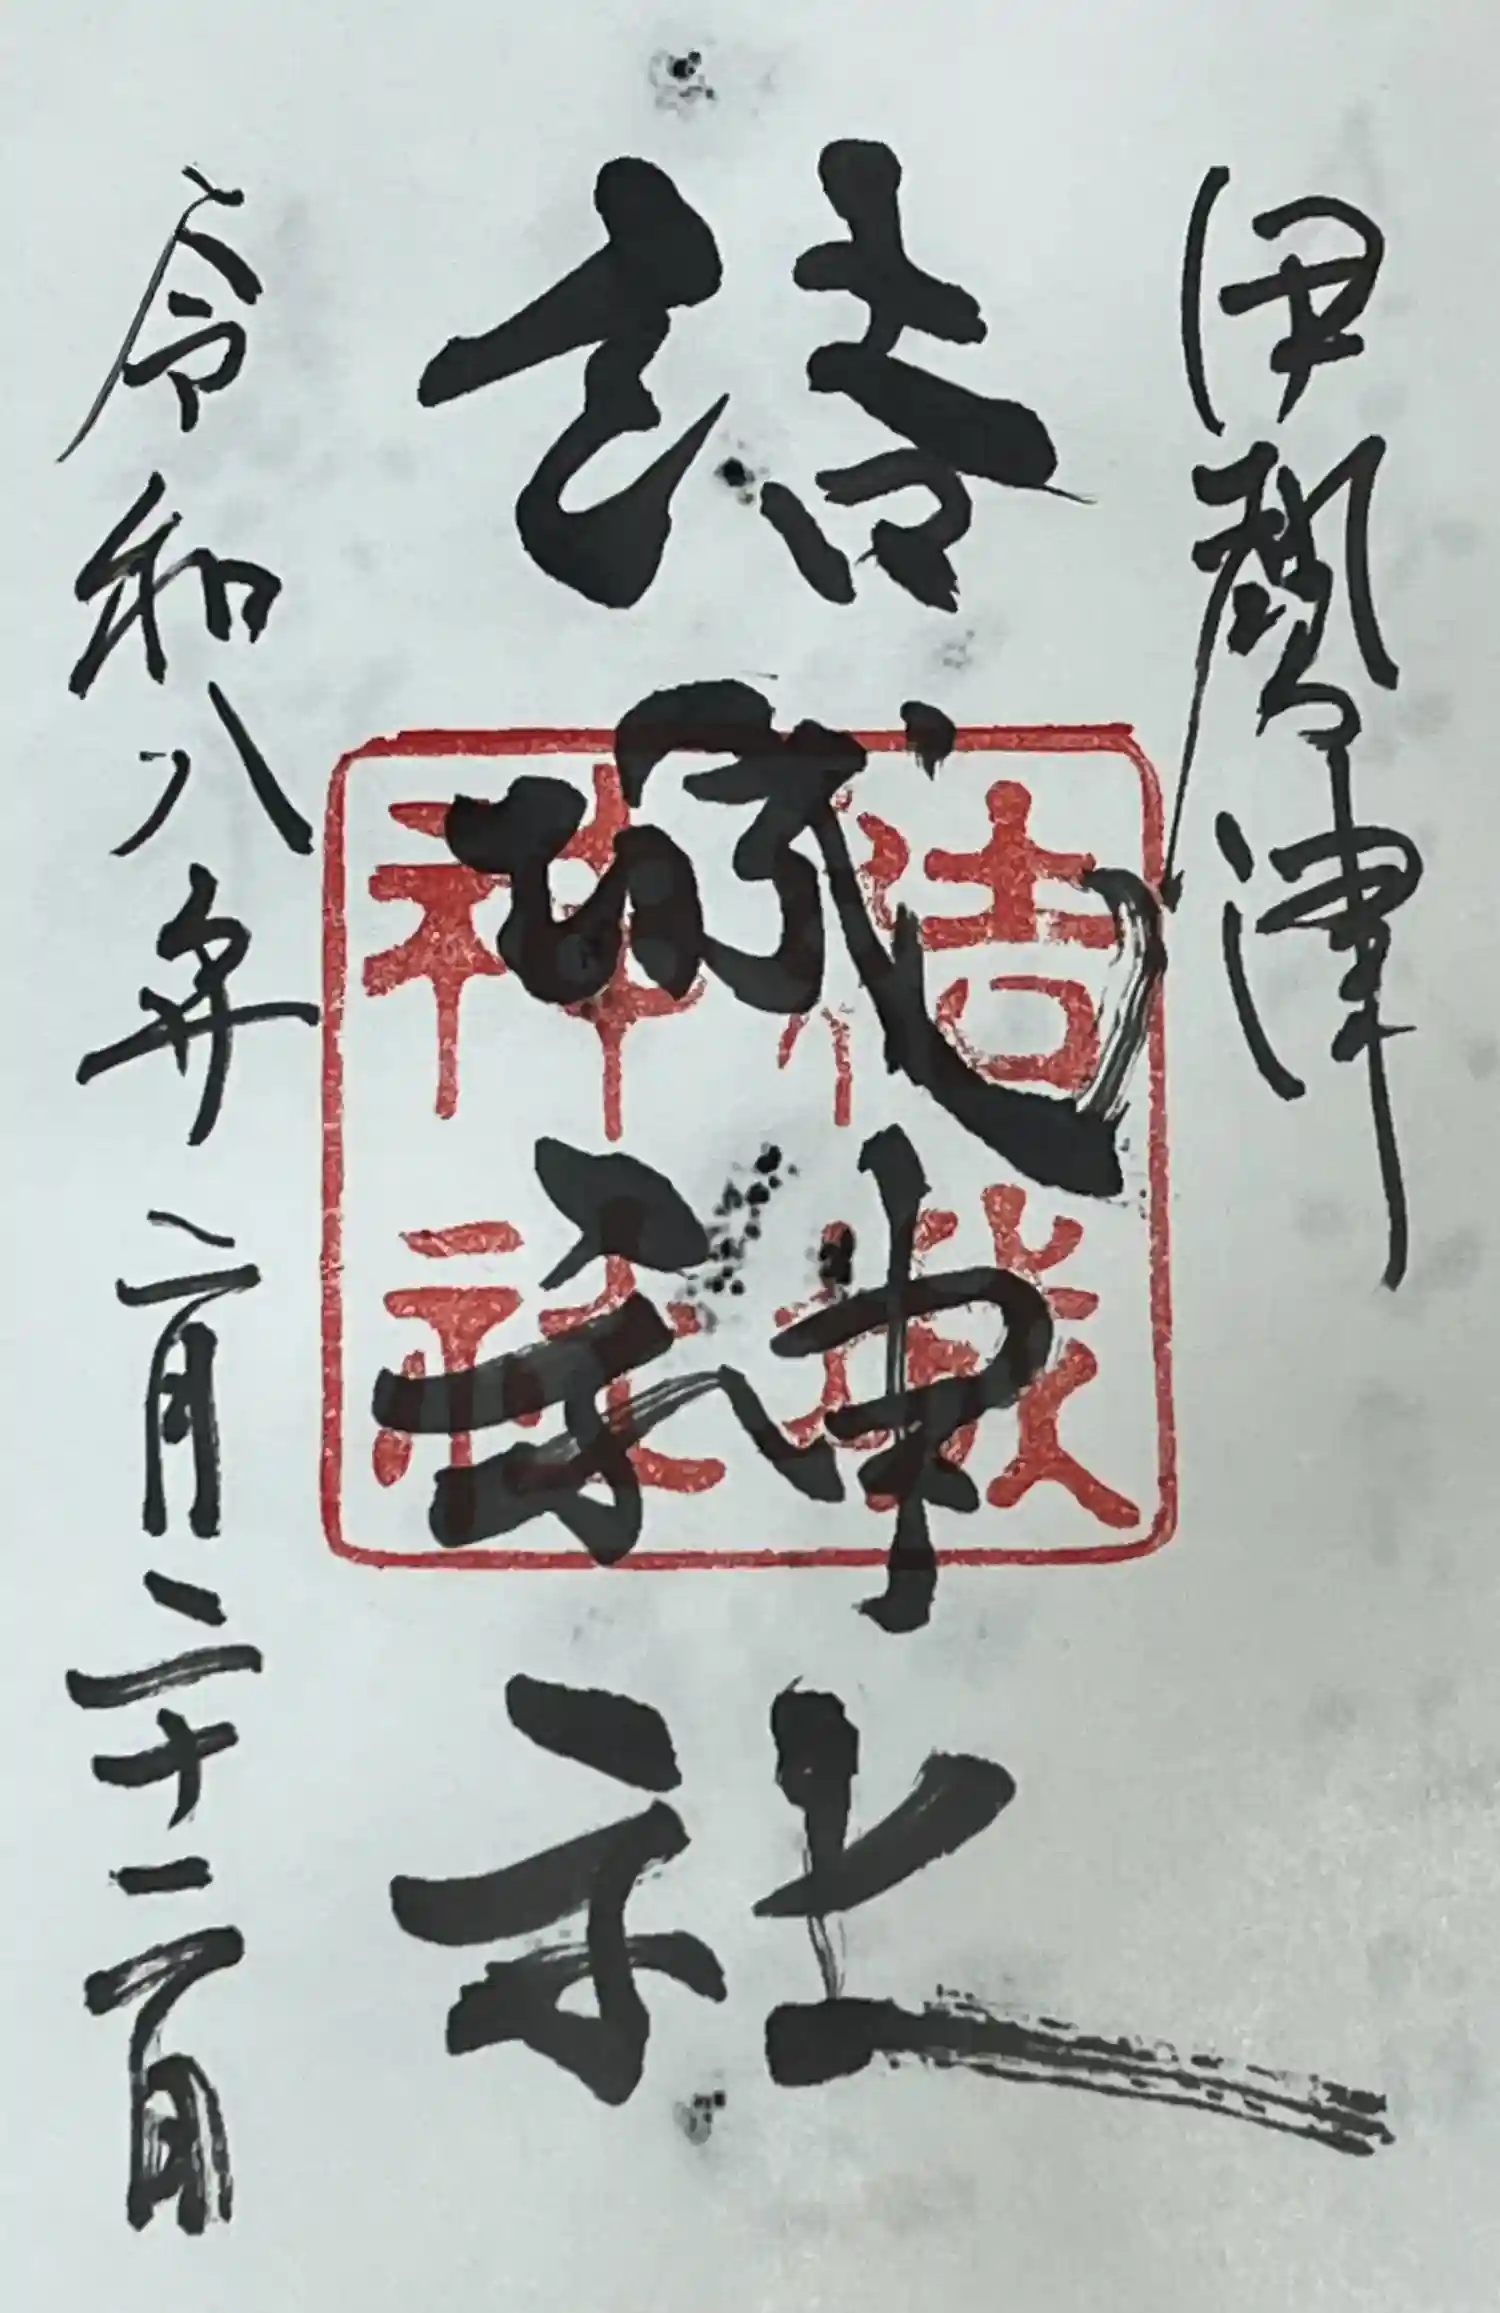 伊勢津
結城神社
結城
神社
令和八年二月二十二日